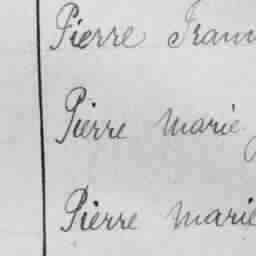 Pierre
Pierre Marie
Pierre Marie